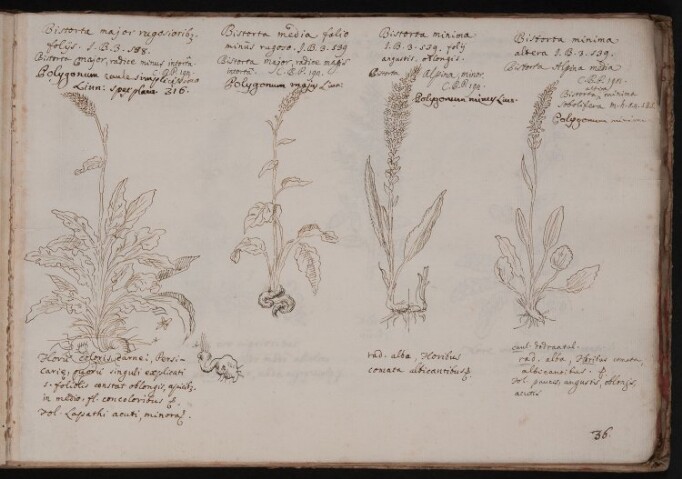 Bistorta major rugosioribꝫ
folijs. I.B.3. 538.
Bistorta major, radice minus intorta
C.B.P. 192.
Polygonum caule simplicissimo
Linn: spec plant. 316.
Bistorta media folio
minus rugoso. I.B.3. 539
Bistorta major, radice magis
intorta. C.B.P. 192.
Polygonum majus Linn:
Bistorta minima
I.B.3. 539. folijs
angustis, oblongis.
Bistorta Alpina, minor.
C.B.P. 192.
Polygonum minus Linn.
Bistorta minima
altera I.B.3. 539.
Bistorta Alpina media
C.B.P. 192.
Bistorta minima
sobolifera
Polygonum minimum
Floris coloris carnei, Persi-
cariæ, quorū singuli explicati
5. foliolis constat oblongis,
in medio. fl. concoloribus
fol. Lapathi acuti, minora.
rad. alba, floribus
comata albicantibus
caul. dodrantal.
rad. alba, floribus comata,
albicantibus.
fol. paucis, angustis, oblongis,
acutis
36.